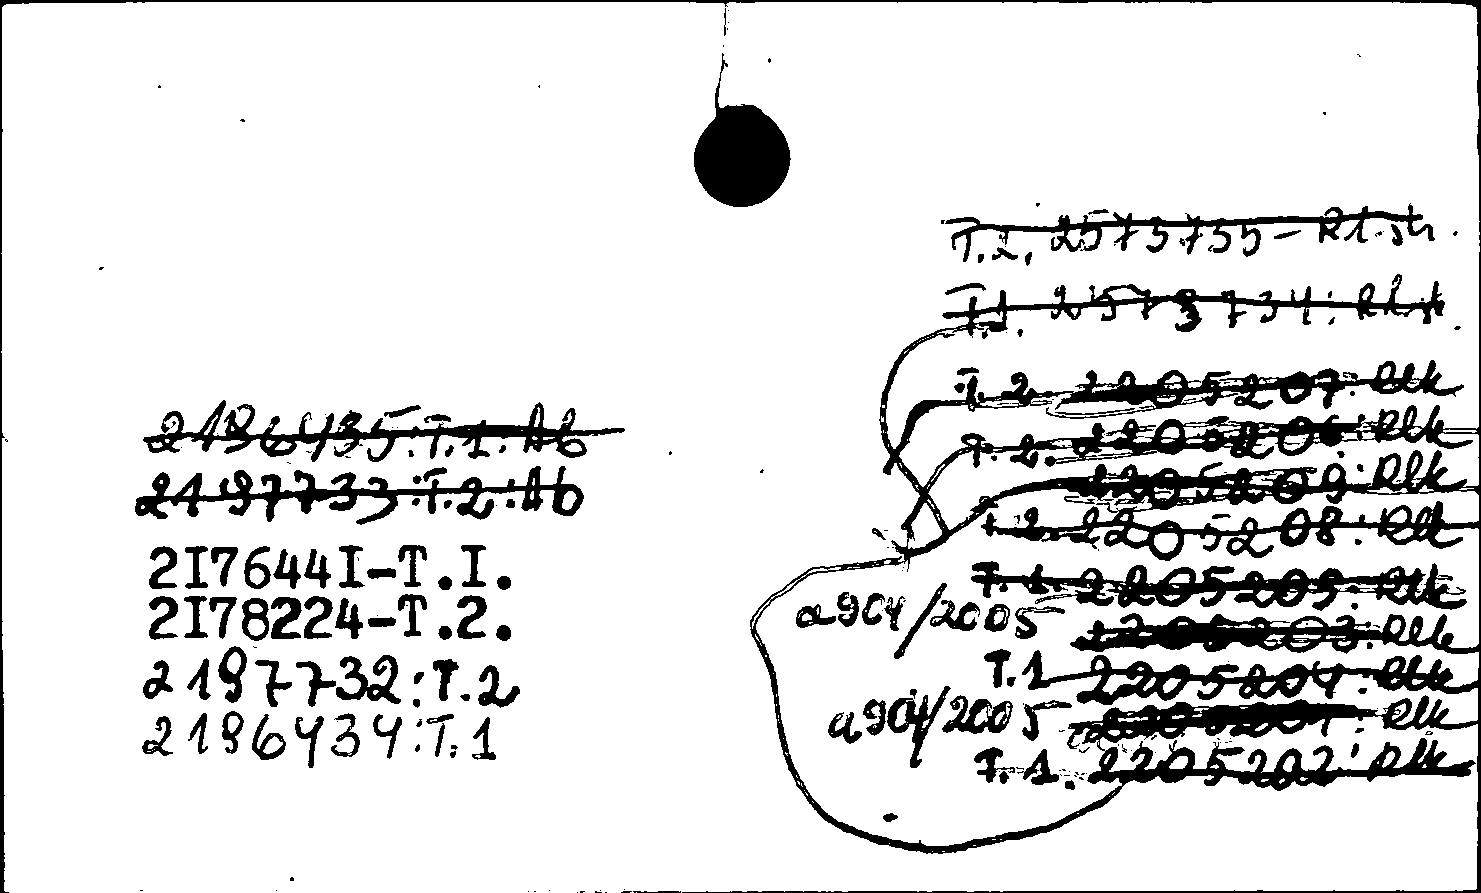 2196435:T.1.Ab
2197733:T.2:Ab
2I7644I-T.I.
2I78224-T.2.
2197732:T.2
2196434:T.1
T.2. 2573735-
T.1. 2573734:
T.2. 2205207: Rlk
T.2. 2205206: Rlk
2205209: Rlk
T.2. 2205208: Rlk
T.1. 2205205: Rlk
a904/2005
2205203: Rlk
T.1 2205204: Rlk
a904/2005 2205201: Rlk
T.1. 2205202: Rlk